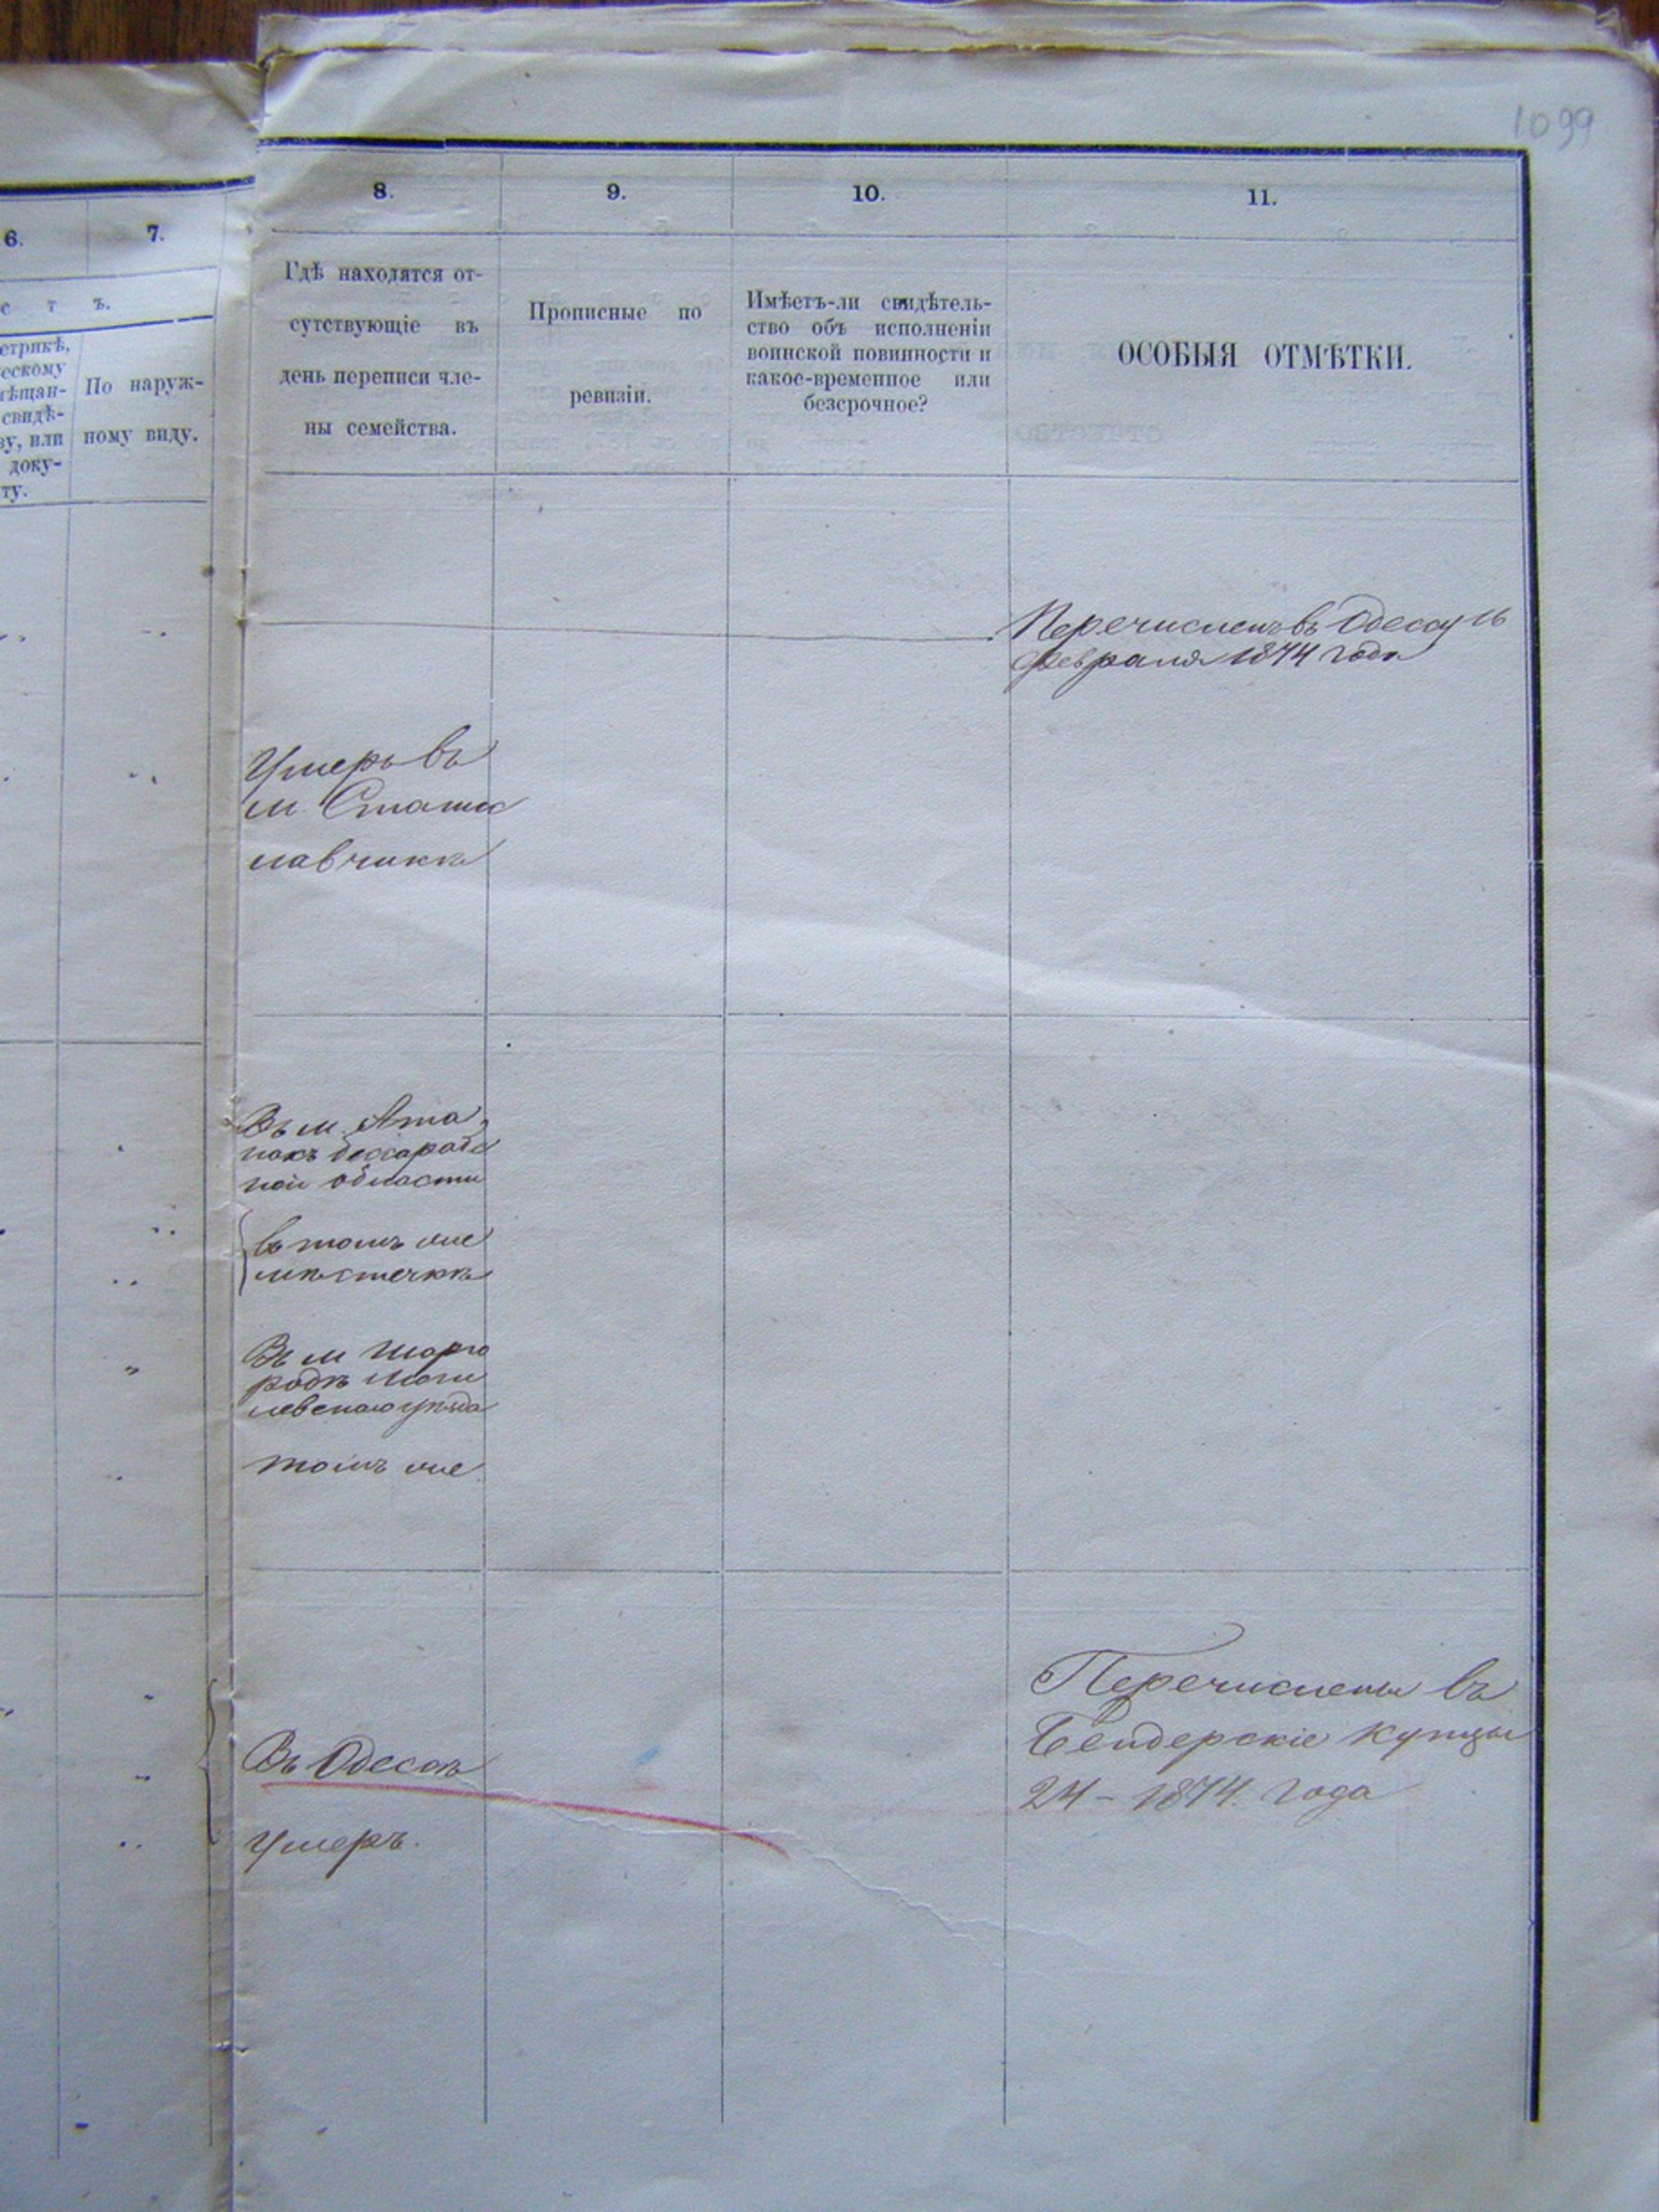 1099
6.
7.
8.
9.
10.
11.
с т ъ.
етрикѣ,
ческому
мѣщан-
свидѣ-
ву, или
доку-
ту.
По наруж-
ному виду.
Гдѣ находятся от-
сутствующіе въ
день переписи чле-
ны семейства.
Прописные по
ревизіи.
Имѣетъ-ли свидѣтель-
ство объ исполненіи
воинской повинности и
какое-временное или
безсрочное?
ОСОБЫЯ ОТМѢТКИ.
Перечисленъ въ Одессу 16
февраля 1874 года
Умеръ въ
м. Станис
лавчикѣ
Въ м. Ата
покъ бессараб
ной области
въ томъ же
мѣстечкѣ
Въ м Шарго
родѣ Моги
левскаго уѣзда
томъ же
Въ Одессѣ
Умеръ.
Перечислены въ
Бендерскіе купцы
24 - 1874. года